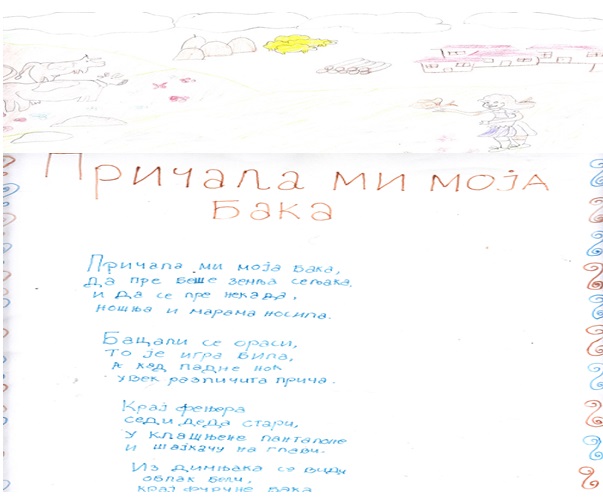 Причала ми моја
бака
Причала ми моја бака,
да пре беше земља сељака.
и да се пре некада,
ношња и марама носила.
Бацали се ораси,
то је игра била,
а кад падне ноћ
увек различита прича.
Крај фењера
седи деда стари,
у клашњене панталоне
и шајкачу на глави.
Из димњака се види
облак бели,
крај фуруне бака